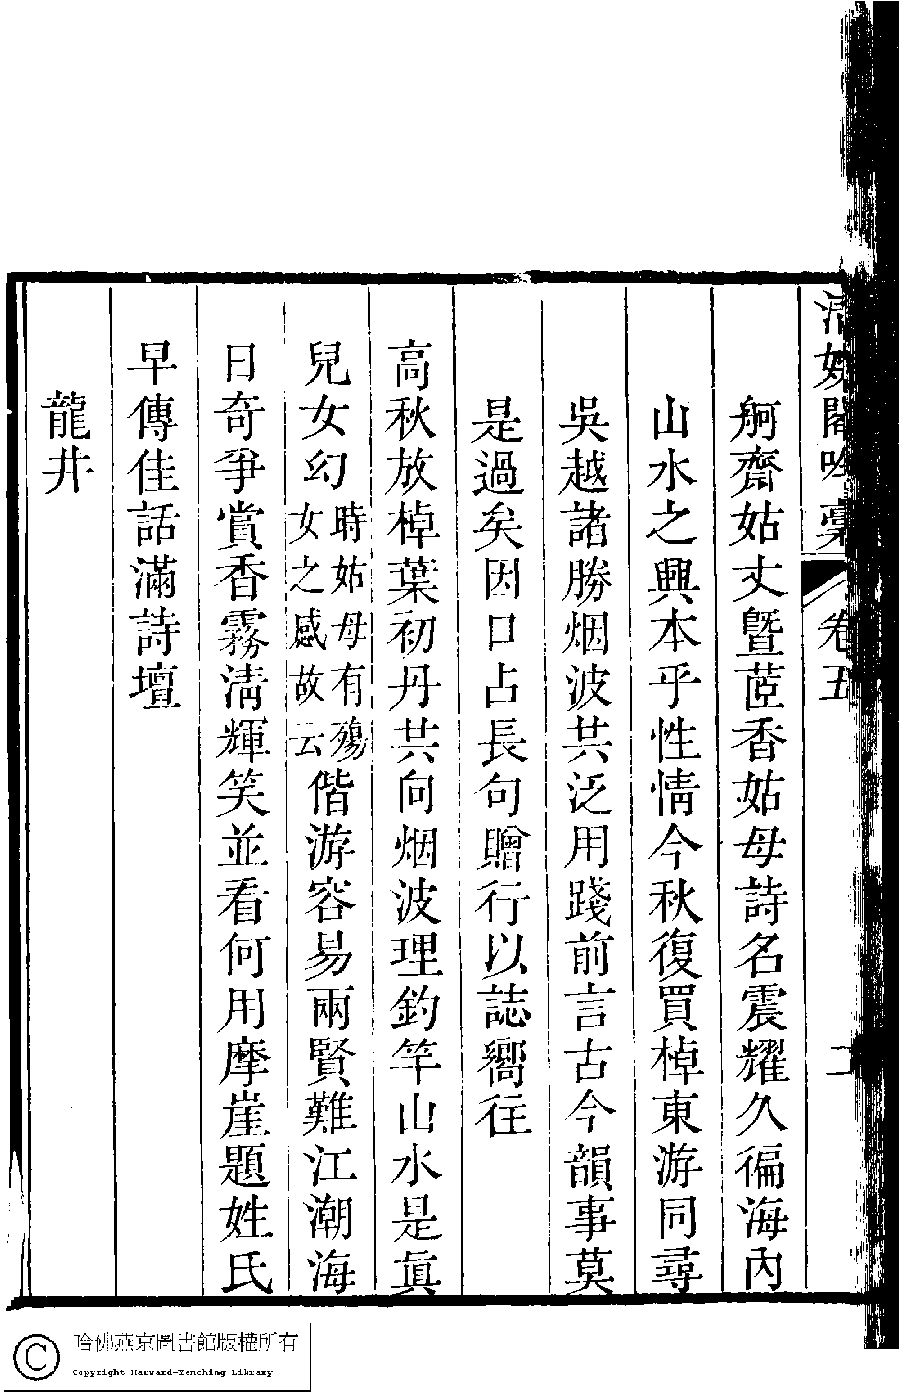 清娱閣吟藳 卷五 二
舸齋姑丈曁茝香姑母詩名震耀久徧海內
山水之興本乎性情今秋復買棹東游同尋
吳越諸勝烟波共泛用踐前言古今韻事莫
是過矣因口占長句贈行以誌嚮往
高秋放棹葉初丹共向烟波理釣竿山水是眞
兒女幻時姑母有殤女之感故云偕游容易兩賢難江潮海
日奇爭賞香霧淸輝笑並看何用摩崖題姓氏
早傳佳話滿詩壇
龍井
哈佛燕京圖書館版權所有
Copyright Harvard-Yenching Library